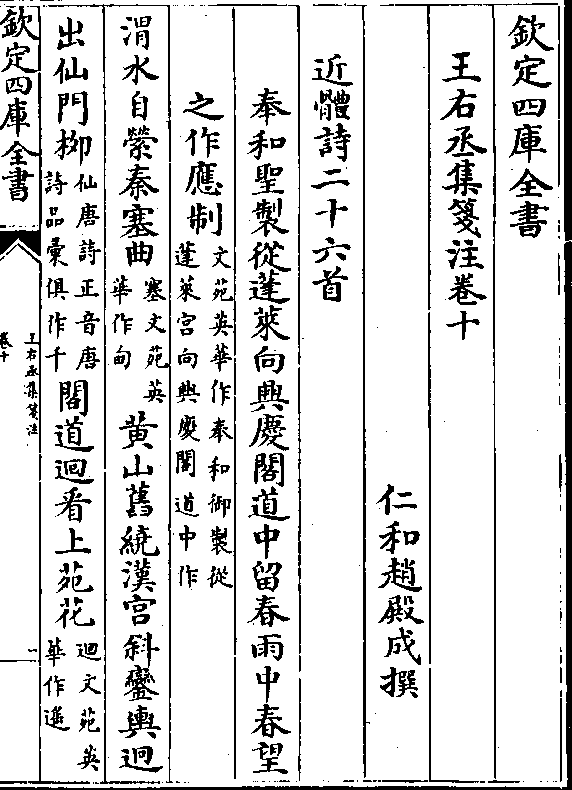 欽定四庫全書
王右丞集箋注卷十
仁和趙殿成撰
近體詩二十六首
奉和聖製從蓬萊向興慶閣道中留春雨中春望
之作應制文苑英華作奉和御製從蓬萊宮向興慶閣道中作
渭水自縈秦塞曲塞文苑英華作甸黄山舊繞漢宮斜鑾輿迥
出仙門栁仙唐詩正音唐詩品彙俱作千閣道迴看上苑花迴文苑英華作遙
欽定四庫全書
王右丞集箋注
卷十
一